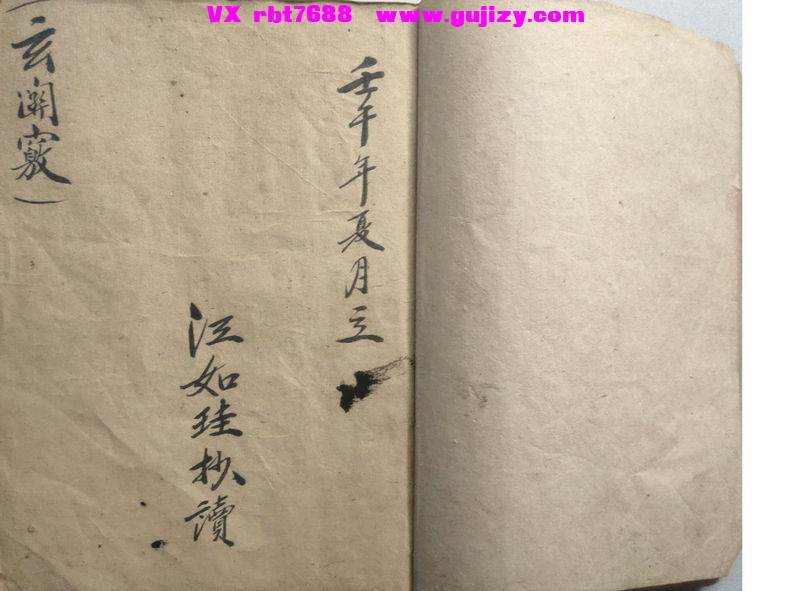 VX rbt7688 www.gujizy.com
壬午年夏月立
江如珪抄讀
玄関竅